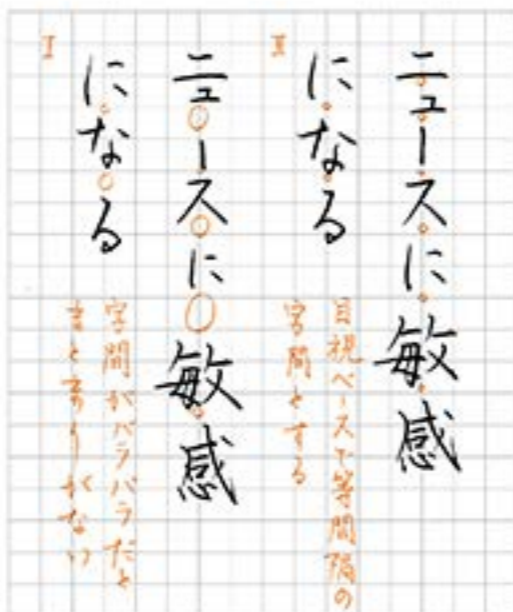 ニュースに敏感
になる
II
目視ベースで等間隔の
字間とする
ニュースに敏感
になる
I
字間がバラバラだと
まとまりがない